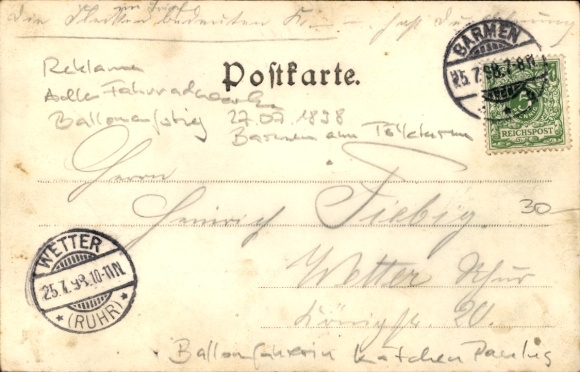 die Flecken bedeuten
BARMEN
25.7.98.7-8N.
Postkarte.
5
REICHSPOST
Reklame
Adler Fahrradwerke
Ballonaufstieg 27.07.1898
Barmen am Tölleturm
Herrn
Heinrich Fiebig
30-
WETTER
25.7.98.10-11N.
* (RUHR) *
Wetter Ruhr
Königstr. 20.
Ballonfahrerin Kätchen Paulus